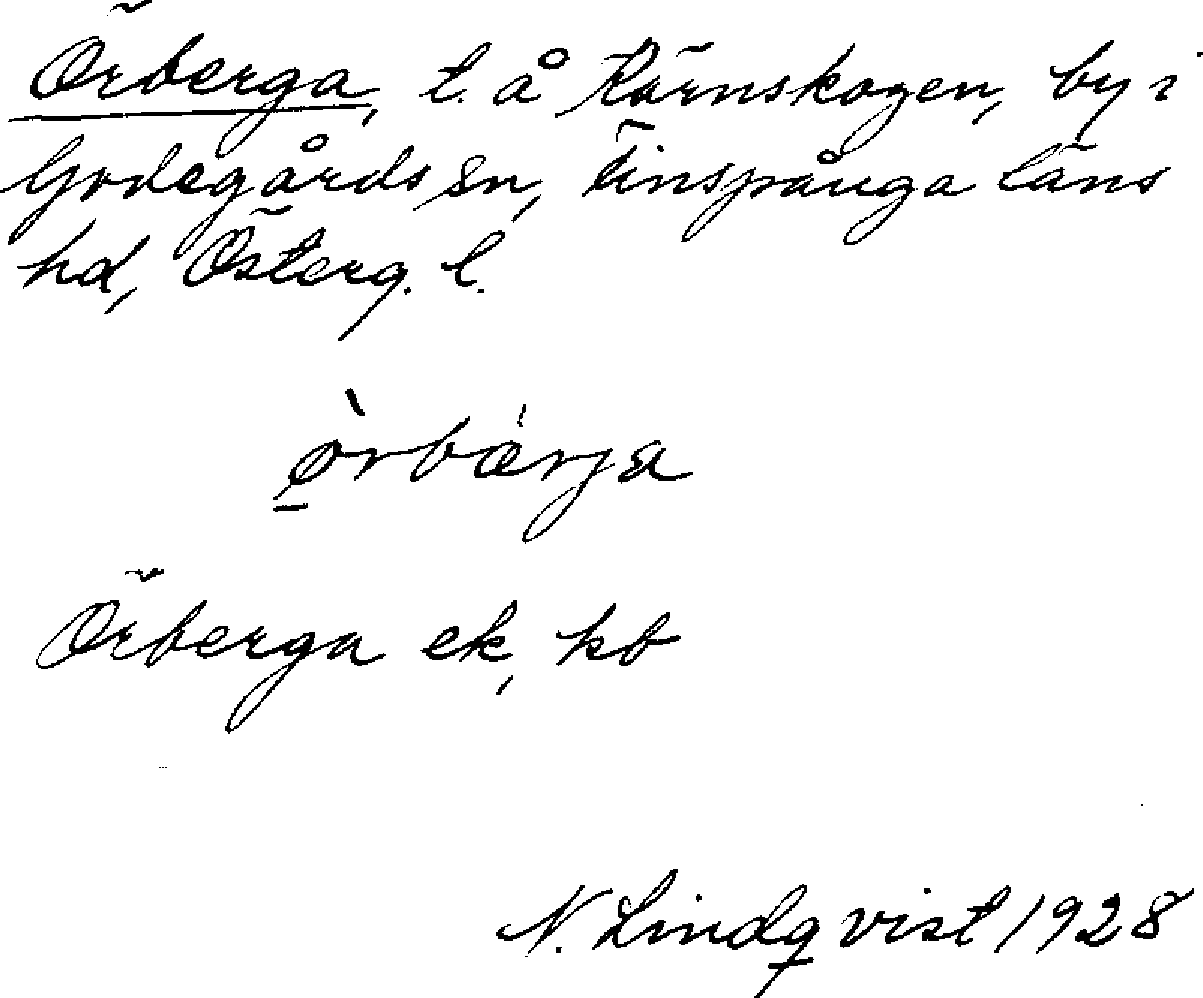 Örberga, t. å Kärnskogen, by i
Godegårds sn, Finspånga läns
hd, Österg. l.
ø̱̀rbæ̀rja
Örberga ek, kb
N. Lindqvist 1928